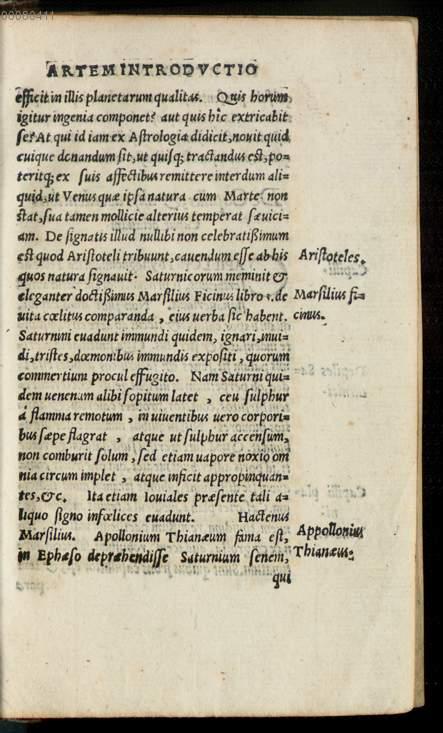 00000411
ARTEM INTRODVCTIO
efficit in illis planetarum qualitas. Quis horum
igitur ingenia componet? aut quis hic extricabit
se? At qui id iam ex Astrologia didicit, nouit quid
cuique donandum sit, ut quisq; tractandus est, po=
teritq; ex suis affectibus remittere interdum ali=
quid, ut Venus quæ ipsa natura cum Marte non
stat, sua tamen mollicie alterius temperat sæuici=
am. De signatis illud nullibi non celebratißimum
est quod Aristoteli tribuunt, cauendum esse ab his
Aristoteles.
quos natura signauit. Saturnicorum meminit &
eleganter doctißimus Marsilius Ficinus libro de
Marsilius fi=
uita cœlitus comparanda, eius uerba sic habent.
cinus.
Saturnini euadunt immundi quidem, ignari, nu=
di, tristes, dæmonibus immundis expositi, quorum
commertium procul effugito. Nam Saturni qui=
dem uenenum alibi sopitum latet, ceu sulphur
á flamma remotum, in uiuentibus uero corpori=
bus sæpe flagrat, atque ut sulphur accensum,
non comburit solum, sed etiam uapore noxio om
nia circum implet, atque inficit appropinquan=
tes, &c. Ita etiam Iouiales præsente tali a=
liquo signo infœlices euadunt. Hactenus
Marsilius. Apollonium Thianæum fama est,
Appollonius
in Ephæso depræhendisse Saturnium senem,
Thianæus.
qui